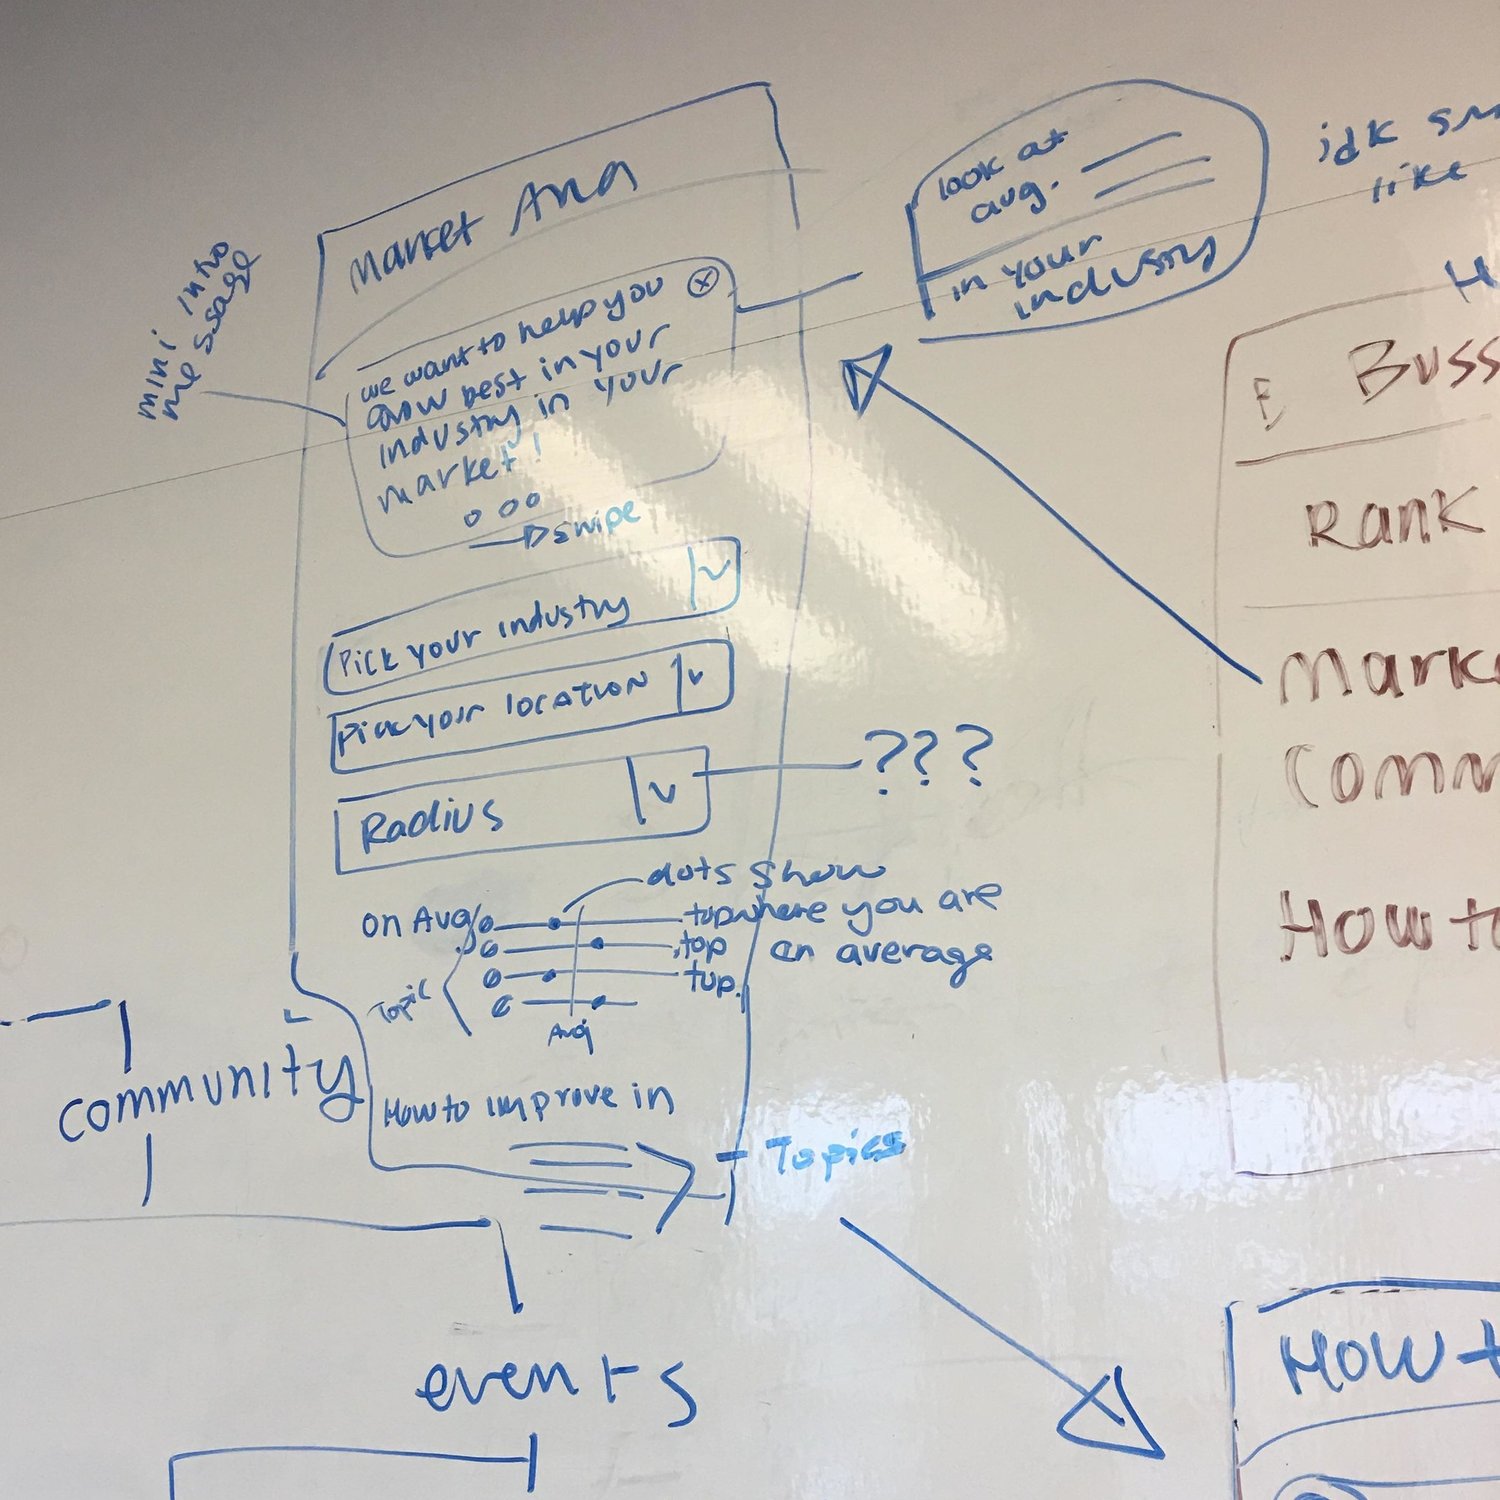 Market Ana
mini intro
message
we want to help you
Grow best in your
industry in your
market!
swipe
Pick your industry
Pick your location
Radius
???
dots show
where you are
on average
on Avg
top
top
top.
Topic
Avg
How to improve in
Topics
community
events
look at
avg.
in your
industry
idk sm
like
H
E Buss
Rank
Marke
Comm
How to
How t